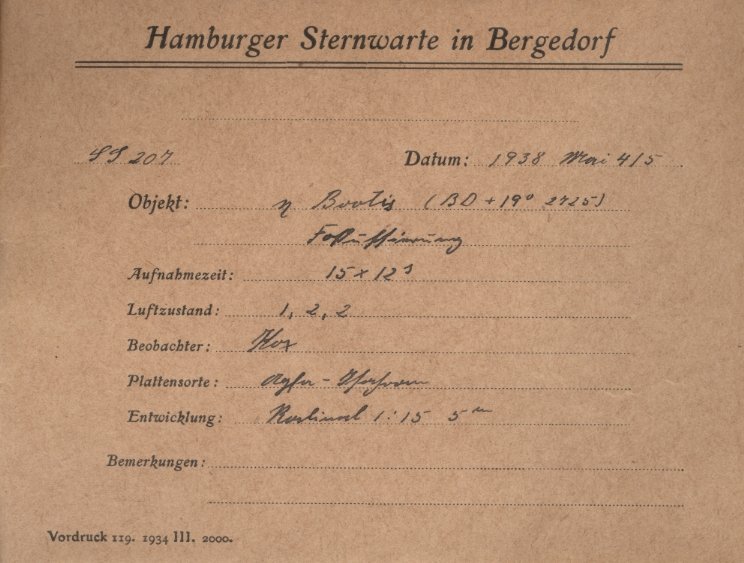 Hamburger Sternwarte in Bergedorf
SS 207 Datum: 1938 Mai 4/5
Objekt: η Bootis (BD + 19° 2725)
Fokussierung
Aufnahmezeit: 15 x 12 s
Luftzustand: 1, 2, 2
Beobachter: Kox
Plattensorte: Agfa - Isochrom
Entwicklung: Rodinal 1:15 5 m
Bemerkungen:
Vordruck 119. 1934 III. 2000.